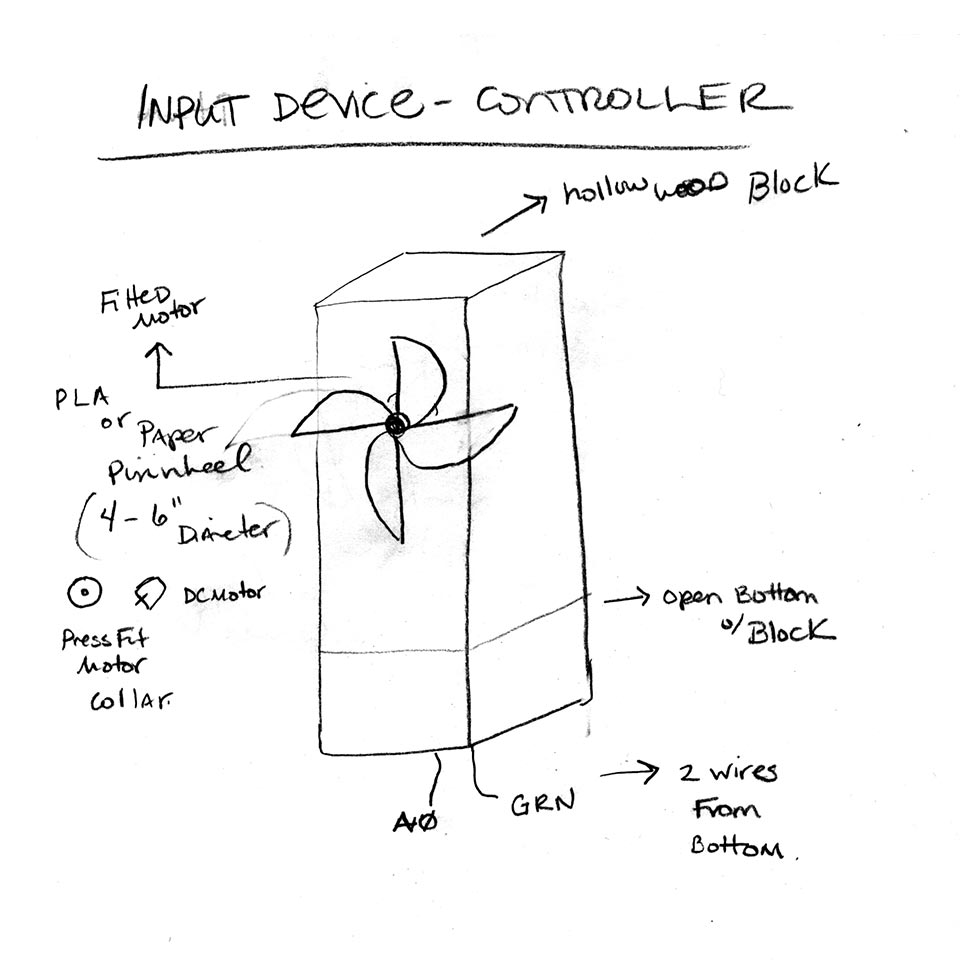 INPUT DEVICE - CONTROLLER
hollow wood Block
Fitted
Motor
PLA
or Paper
Pinwheel
(4 - 6"
Diameter)
DC Motor
Press Fit
Motor
Collar.
open Bottom
w/ Block
A0
GRN
2 wires
From
Bottom.